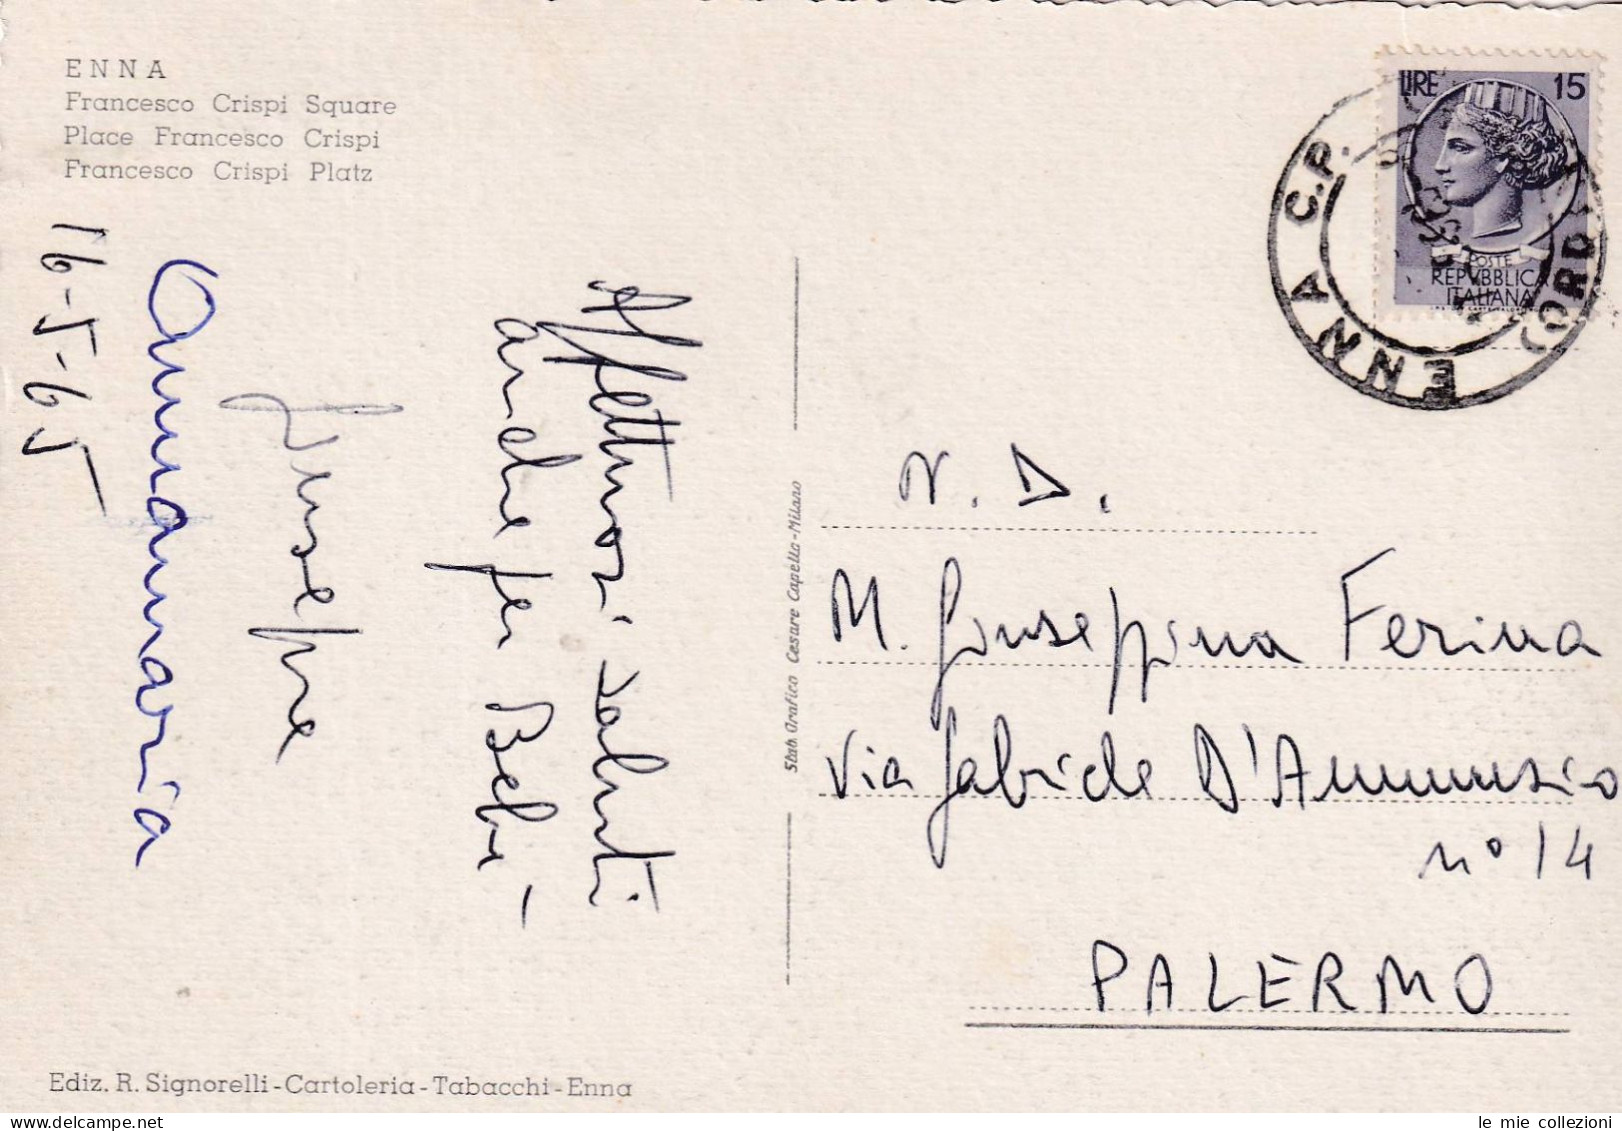 ENNA
Francesco Crispi Square
Place Francesco Crispi
Francesco Crispi Platz
16-5-65
Affettuosi saluti
anche per Bebi-
Giuseppe
Annamaria
Stab. Grafico Cesare Capella-Milano
LIRE 15
POSTE
REPVBBLICA
ITALIANA
ENNA C.P.
(ORD
N. D.
M. Giuseppina Ferina
Via Gabriele D'Annunzio
n° 14
PALERMO
Ediz. R. Signorelli-Cartoleria-Tabacchi-Enna
le mie collezioni